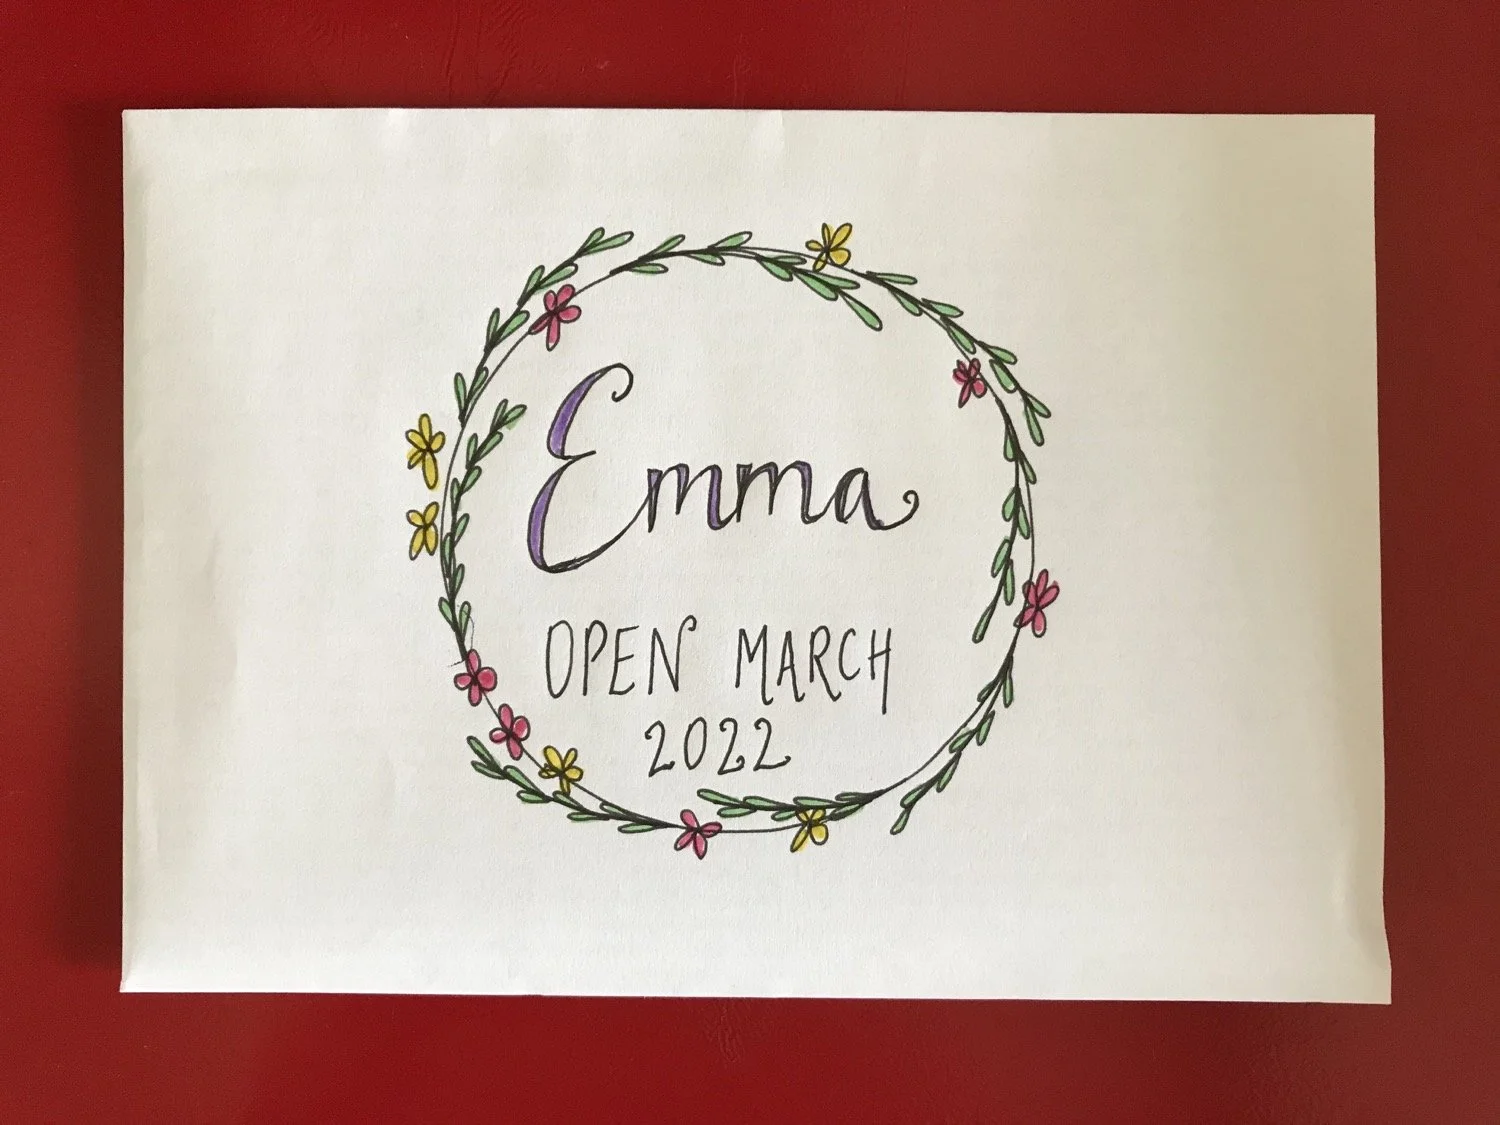 Emma
OPEN MARCH
2022